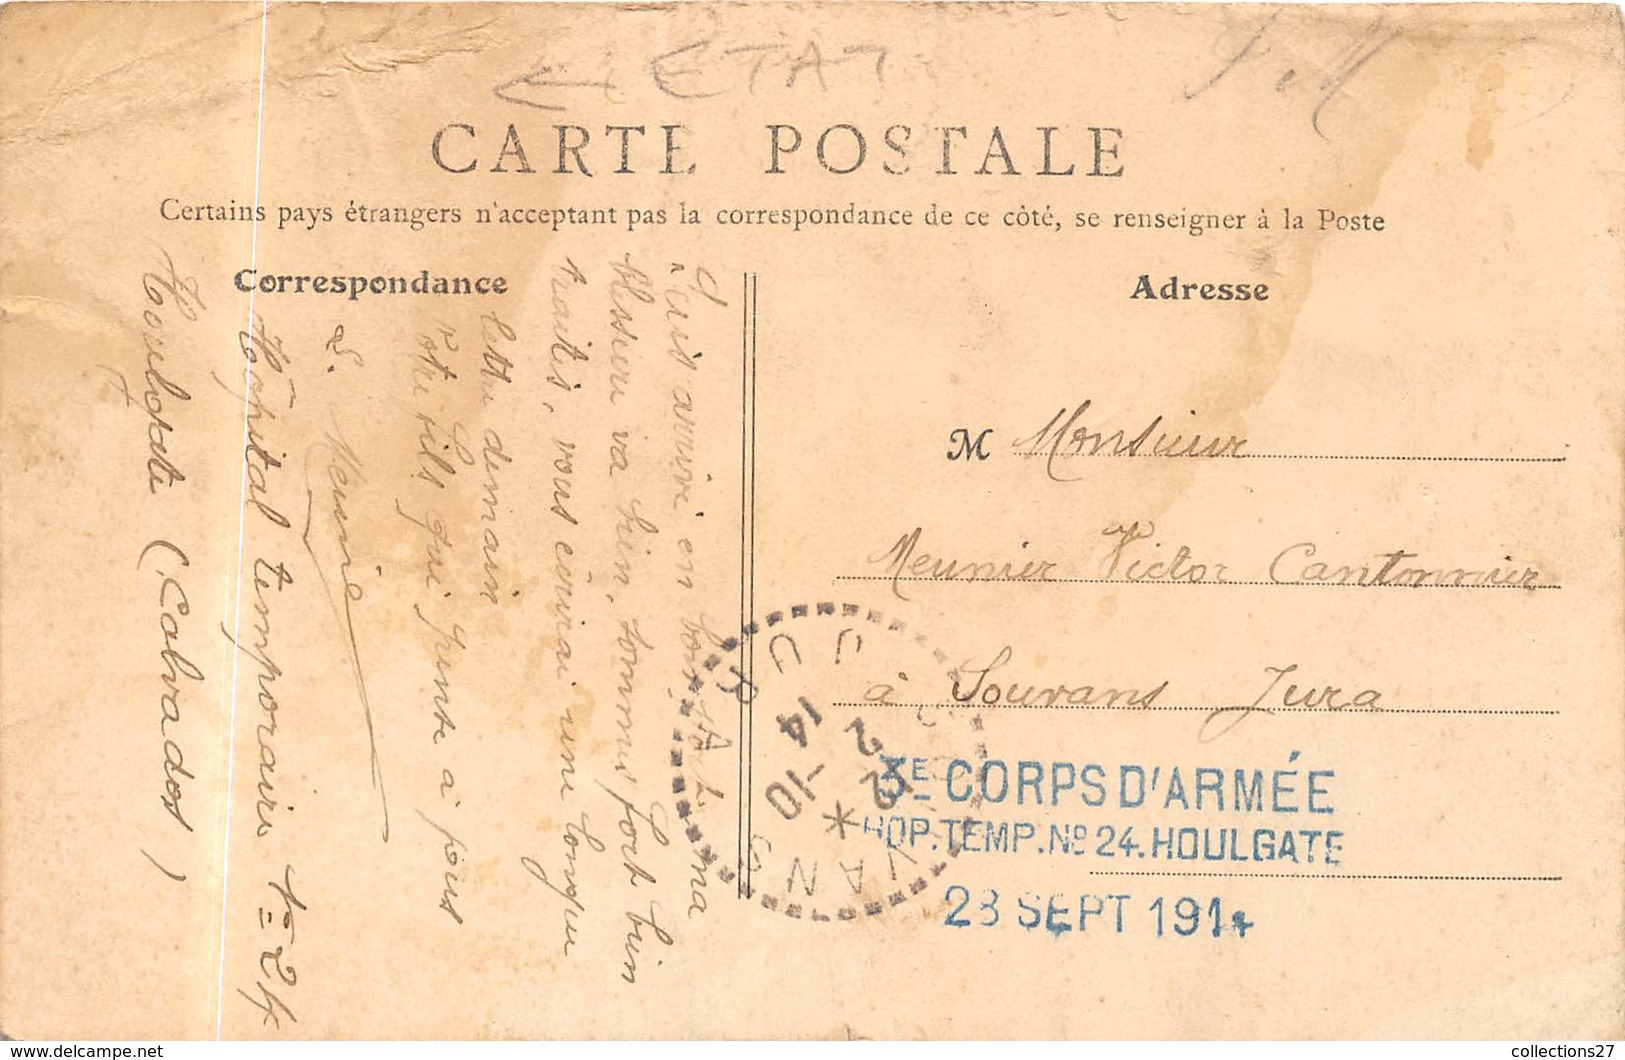 ETAT
CARTE POSTALE
Certains pays étrangers n'acceptant pas la correspondance de ce côté, se renseigner à la Poste
Correspondance
suis arrivé en bonne santé, ma
blessure va bien, sommes fort bien
traités, vous écrirai une longue
lettre demain
Votre fils qui pense à vous
L. Meunier
Hôpital temporaire n= 24
Houlgate (Calvados)
Adresse
M Monsieur
Meunier Victor Cantonnier
à Souvans Jura
3E CORPS D'ARMÉE
HOP.TEMP.No 24.HOULGATE
28 SEPT 1914
collections27